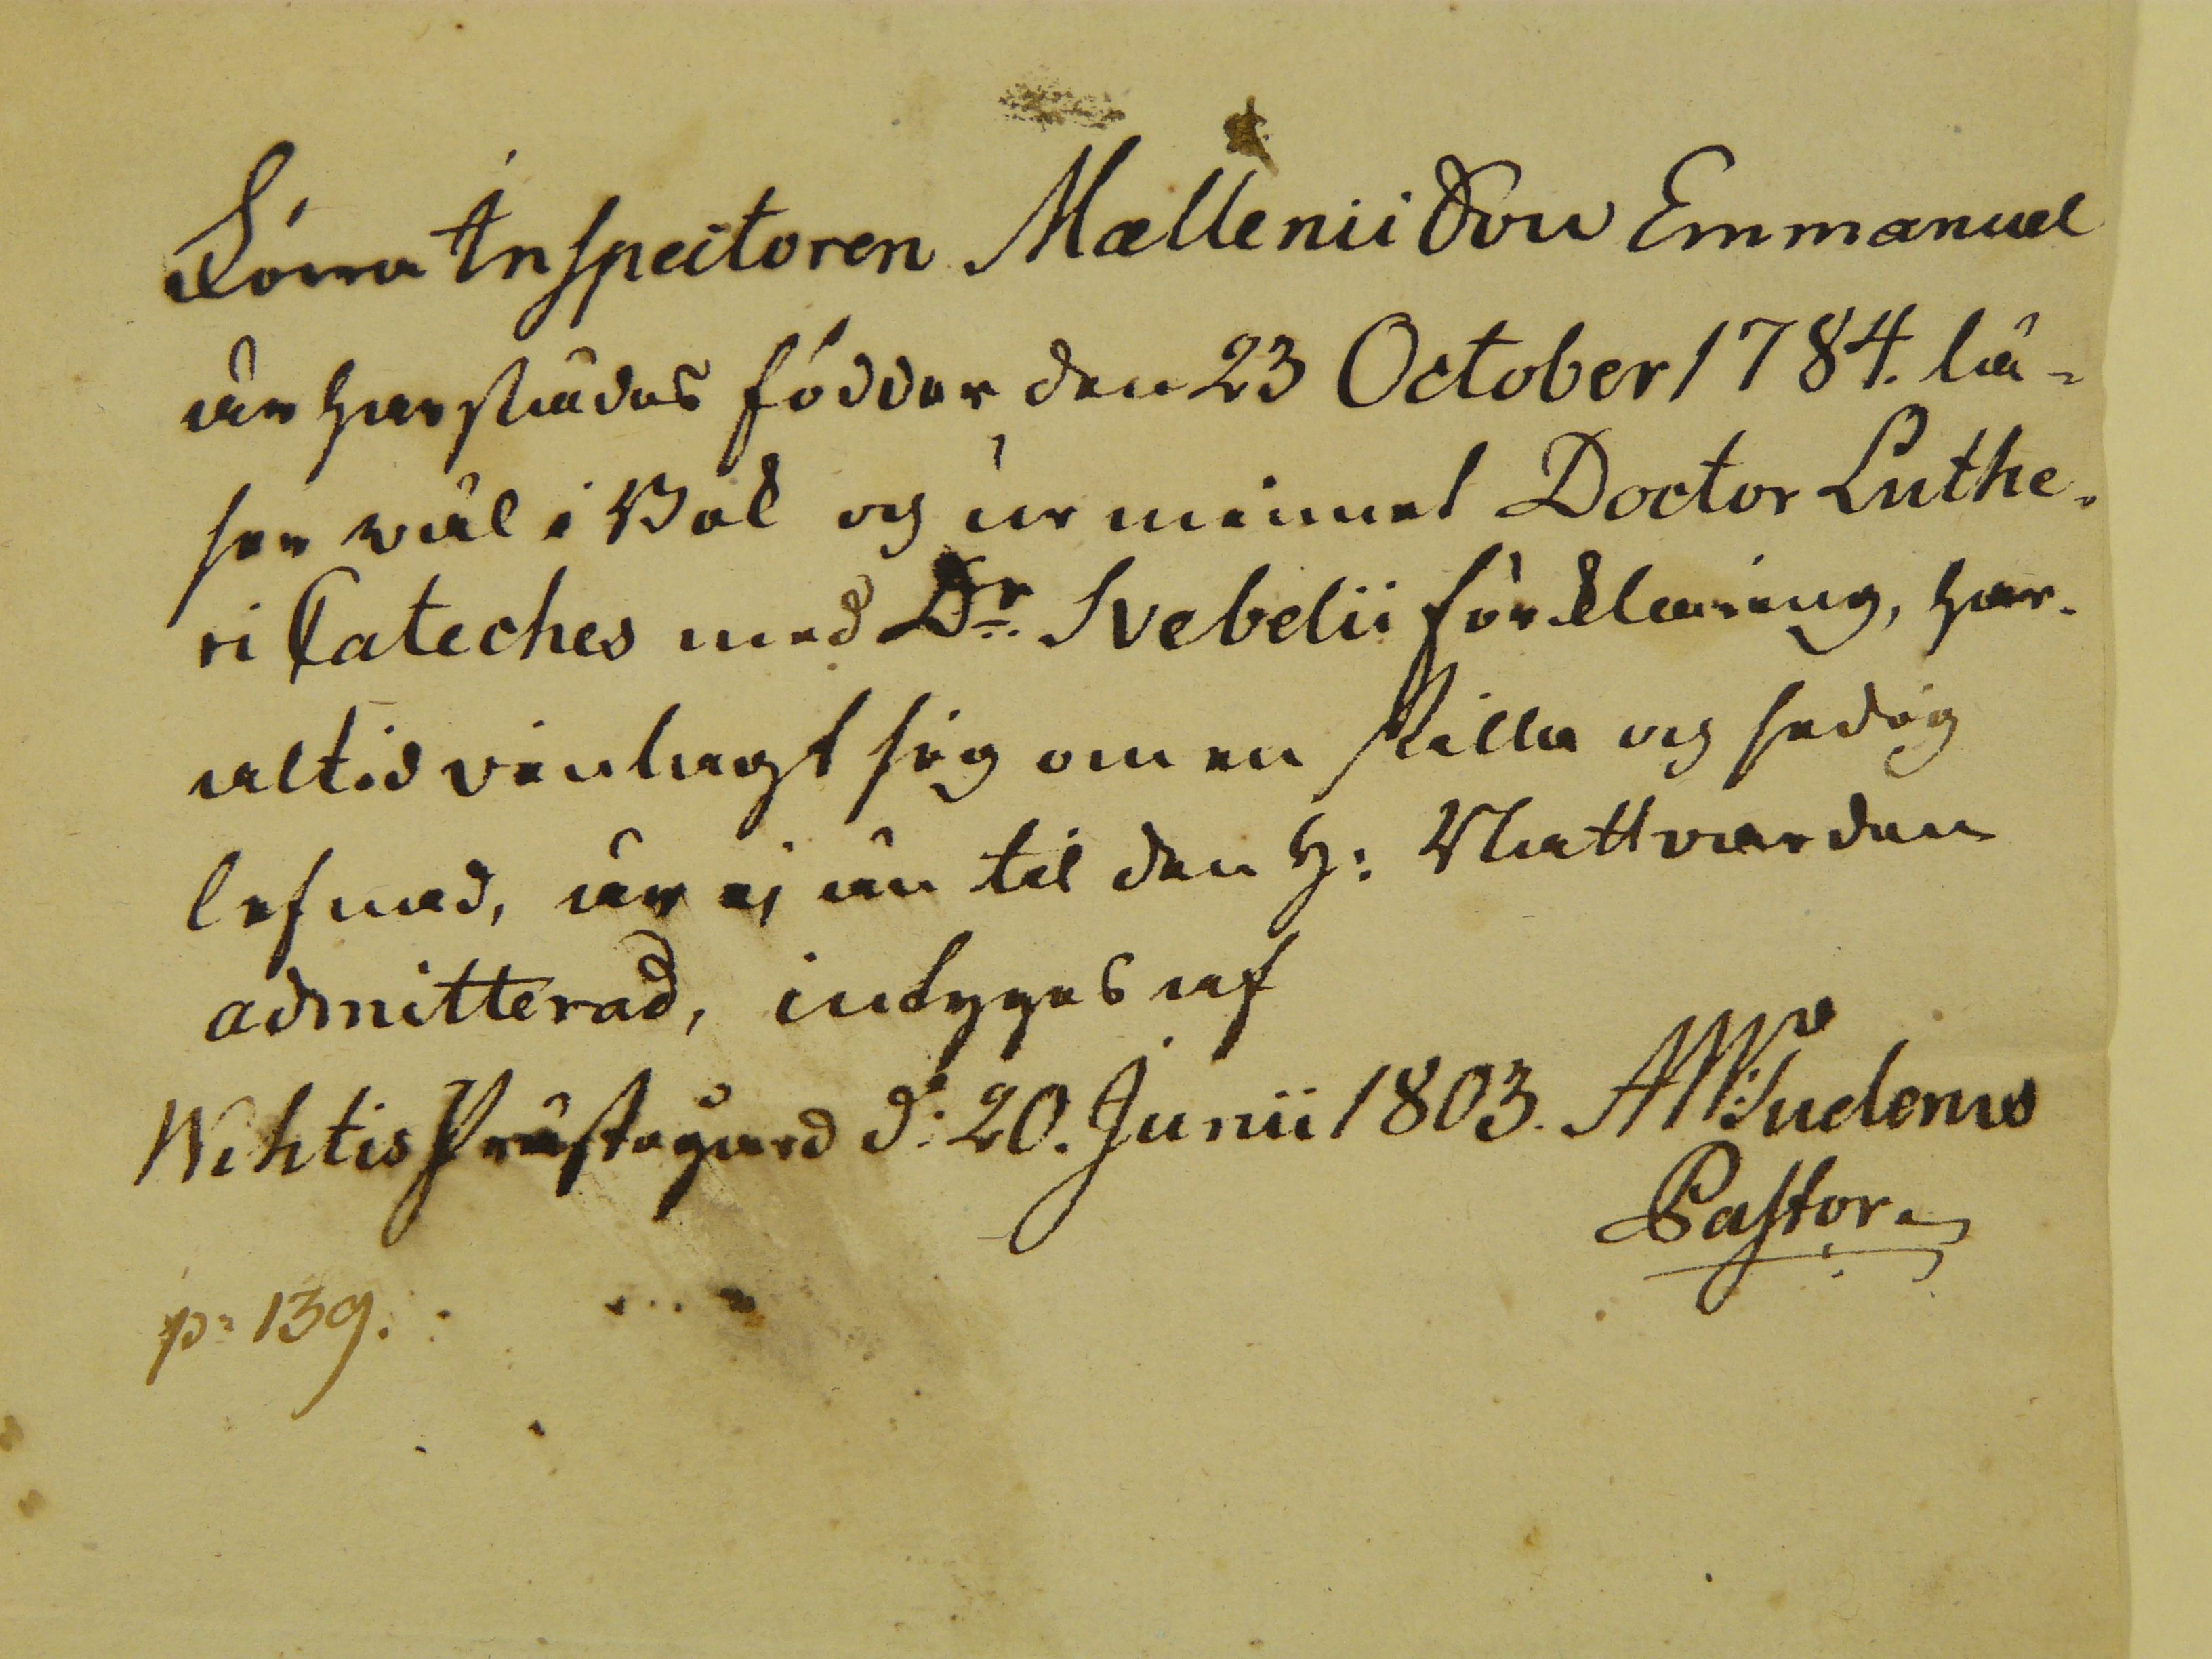 Förra Inspectoren Mælleni Son Emmanuel
är härstädes födder den 23 October 1784. lä-
ser wäl i Bok och ur minnet Doctor Luthe-
ri Cateches med Dr. Svebelii förklaring, har
altid vinlagt sig om en stilla och sedig
lefnad, är ej än til den H: Nattvarden
admitterad, intygas af
Wihtis Prästegård d: 20. Junii 1803. AWTudenus
Pastor.
p: 139.